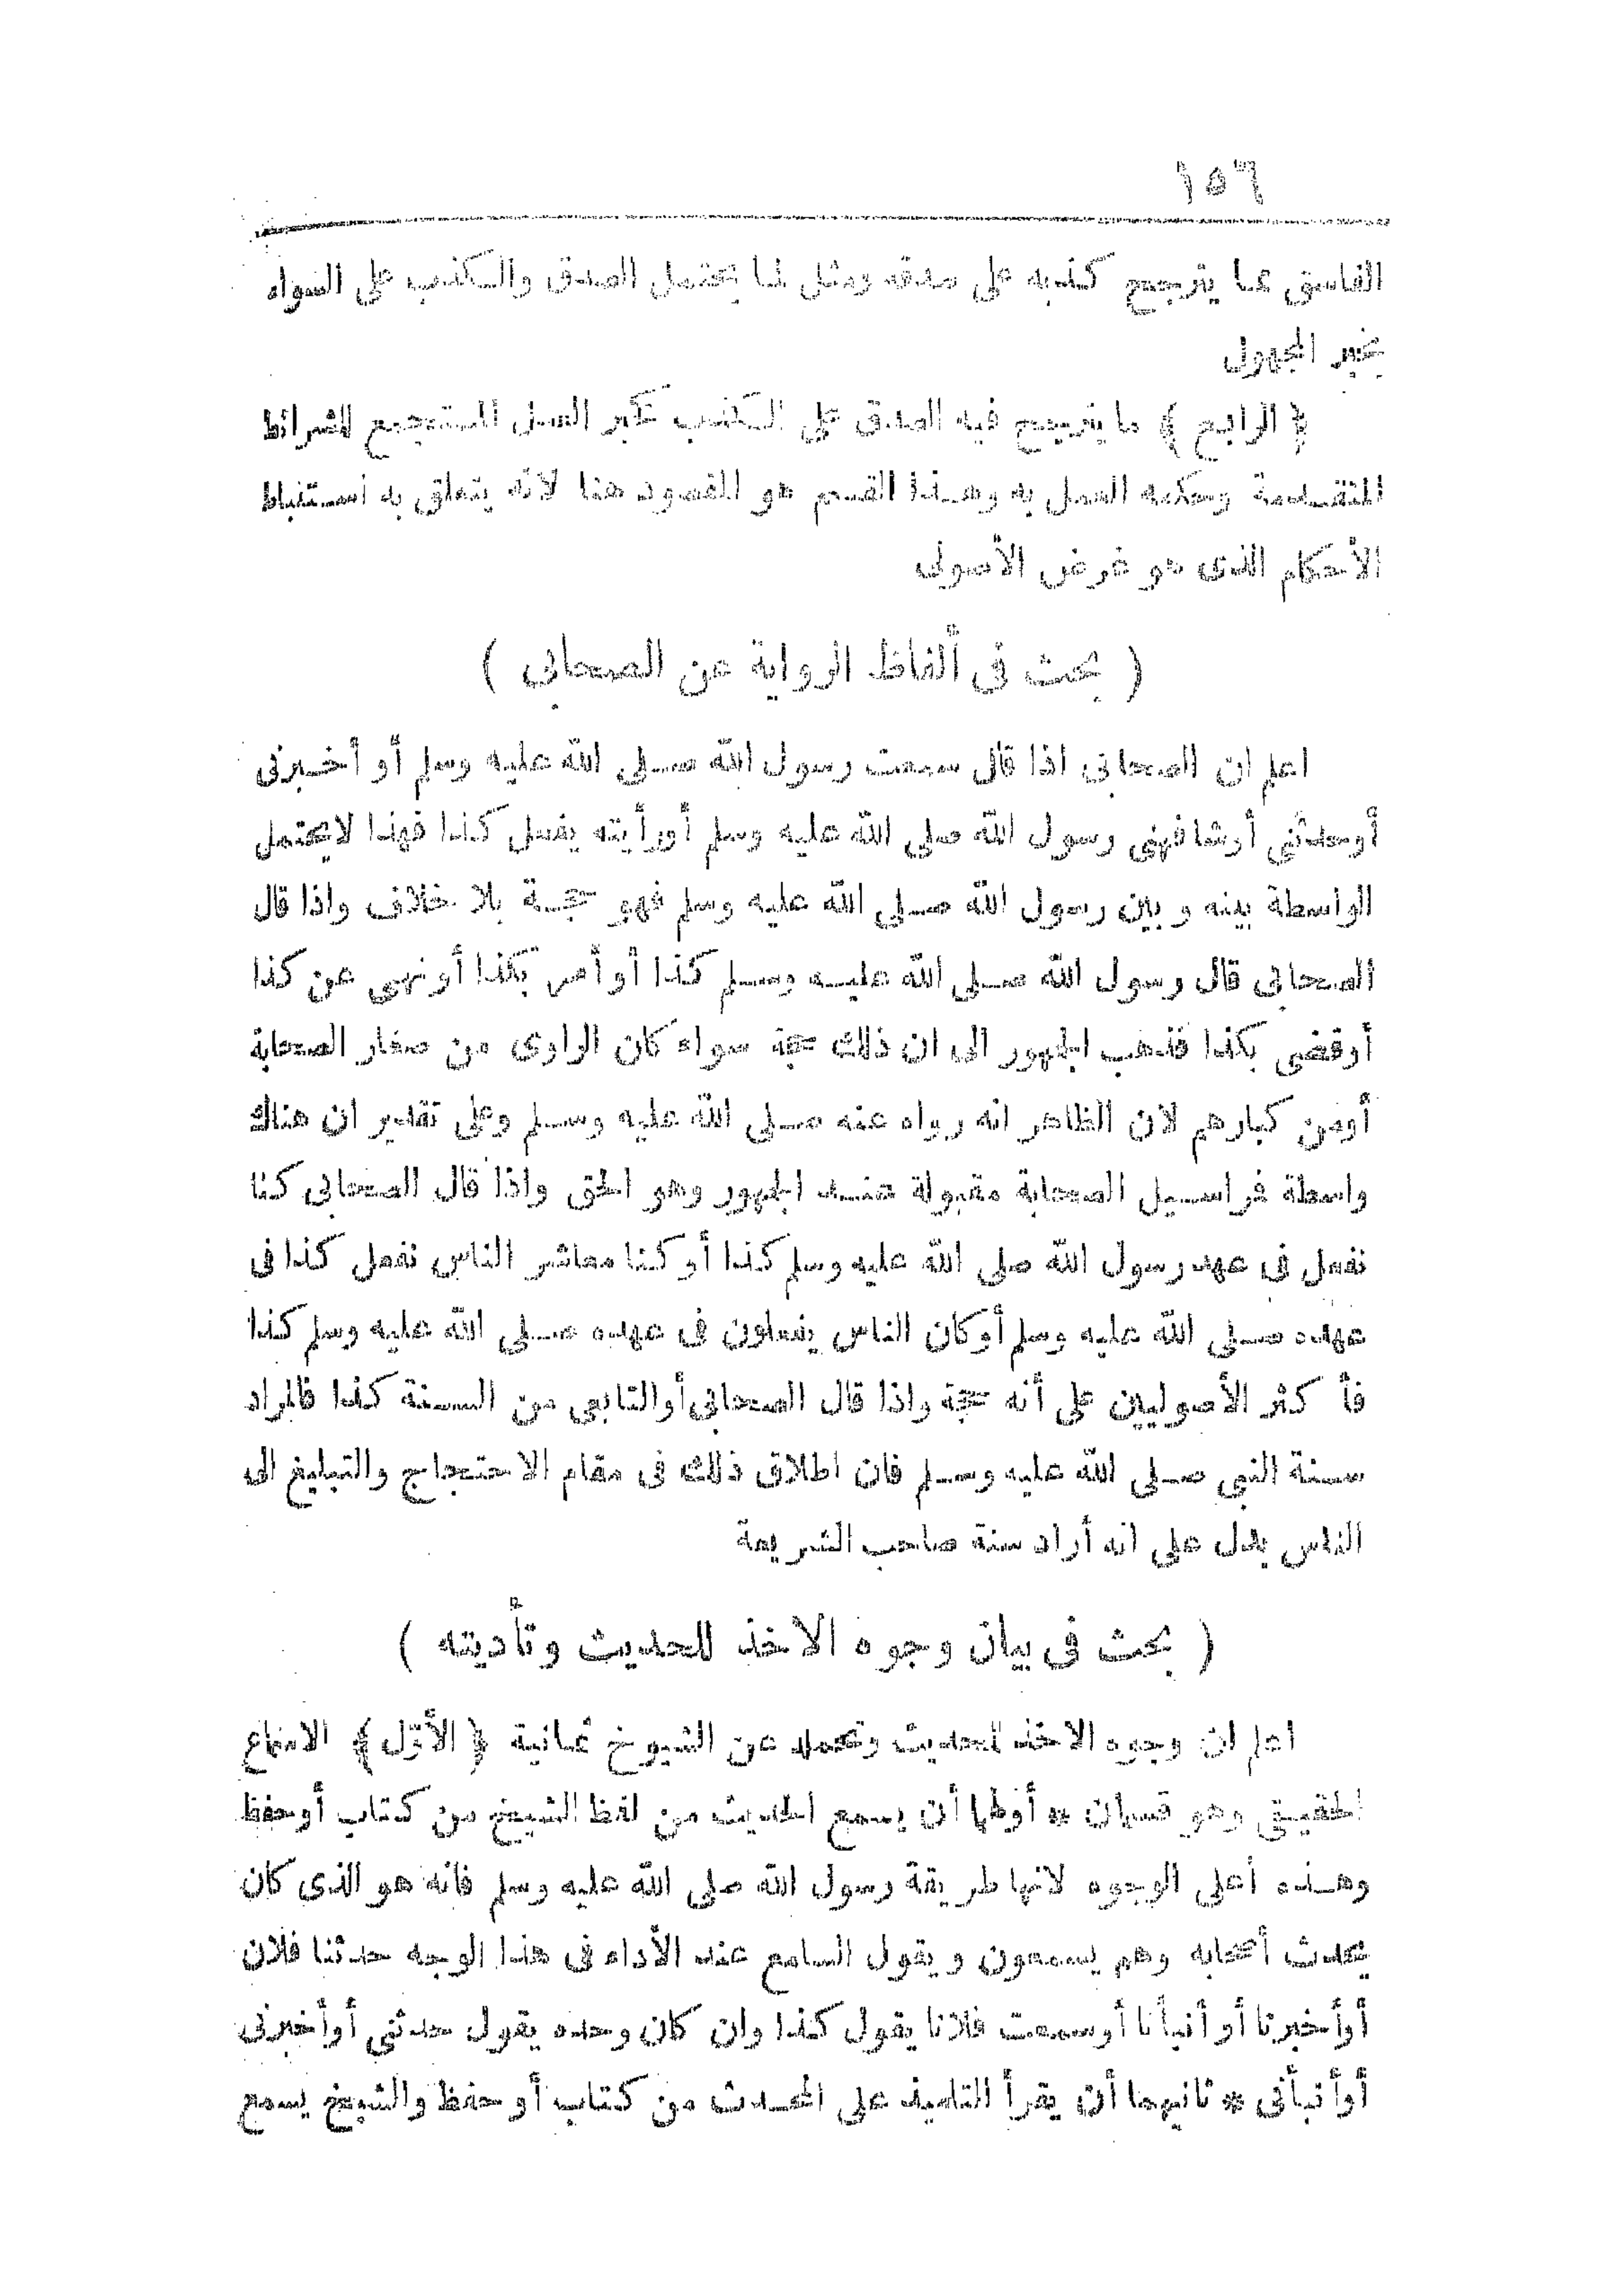 ١٥٦
الفاسق مما يترجح كذبه على صدقه ومثل لما يحتمل الصدق والكذب على السواء
بخبر المجهول
﴿ الرابع ﴾ ما يترجح فيه الصدق على الكذب كخبر العدل المستجمع للشرائط
المتقدمة وحكمه العمل به وهذا القسم هو المقصود هنا لانه يتعلق به استنباط
الأحكام الذى هو غرض الأصولى
( بحث فى ألفاظ الرواية عن الصحابى )
اعلم ان الصحابى اذا قال سمعت رسول الله صلى الله عليه وسلم أو أخبرنى
أوحدثنى أوشافهنى رسول الله صلى الله عليه وسلم أورأيته يفعل كذا فهذا لايحتمل
الواسطة بينه وبين رسول الله صلى الله عليه وسلم فهو حجة بلا خلاف واذا قال
الصحابى قال رسول الله صلى الله عليه وسلم كذا أو أمر بكذا أو نهى عن كذا
أوقضى بكذا فذهب الجمهور الى ان ذلك حجة سواء كان الراوى من صغار الصحابة
أومن كبارهم لان الظاهر انه رواه عنه صلى الله عليه وسلم وعلى تقدير ان هناك
واسطة فراسيل الصحابة مقبولة عند الجمهور وهو الحق واذا قال الصحابى كنا
نفعل فى عهد رسول الله صلى الله عليه وسلم كذا أوكنا معاشر الناس نفعل كذا فى
عهده صلى الله عليه وسلم أوكان الناس يفعلون فى عهده صلى الله عليه وسلم كذا
فأكثر الأصوليين على أنه حجة واذا قال الصحابى أوالتابعى من السنة كذا فالمراد
سنة النبى صلى الله عليه وسلم فان اطلاق ذلك فى مقام الاحتجاج والتبليغ الى
الناس يدل على انه أراد سنة صاحب الشريعة
( بحث فى بيان وجوه الاخذ للحديث وتأديته )
اعلم ان وجوه الاخذ للحديث وتحمله عن الشيوخ ثمانية ﴿ الأوّل ﴾ الاسماع
الحقيقى وهو قسمان * أولهما أن يسمع الحديث من لفظ الشيخ من كتاب أوحفظ
وهذه أعلى الوجوه لانها طريقة رسول الله صلى الله عليه وسلم فانه هو الذى كان
يحدث أصحابه وهم يسمعون ويقول السامع عند الأداء فى هذا الوجه حدثنا فلان
أوأخبرنا أو أنبأنا أوسمعت فلانا يقول كذا وان كان وحده يقول حدثنى أوأخبرنى
أوأنبأنى * ثانيهما أن يقرأ التلميذ على المحدث من كتاب أو حفظ والشيخ يسمع